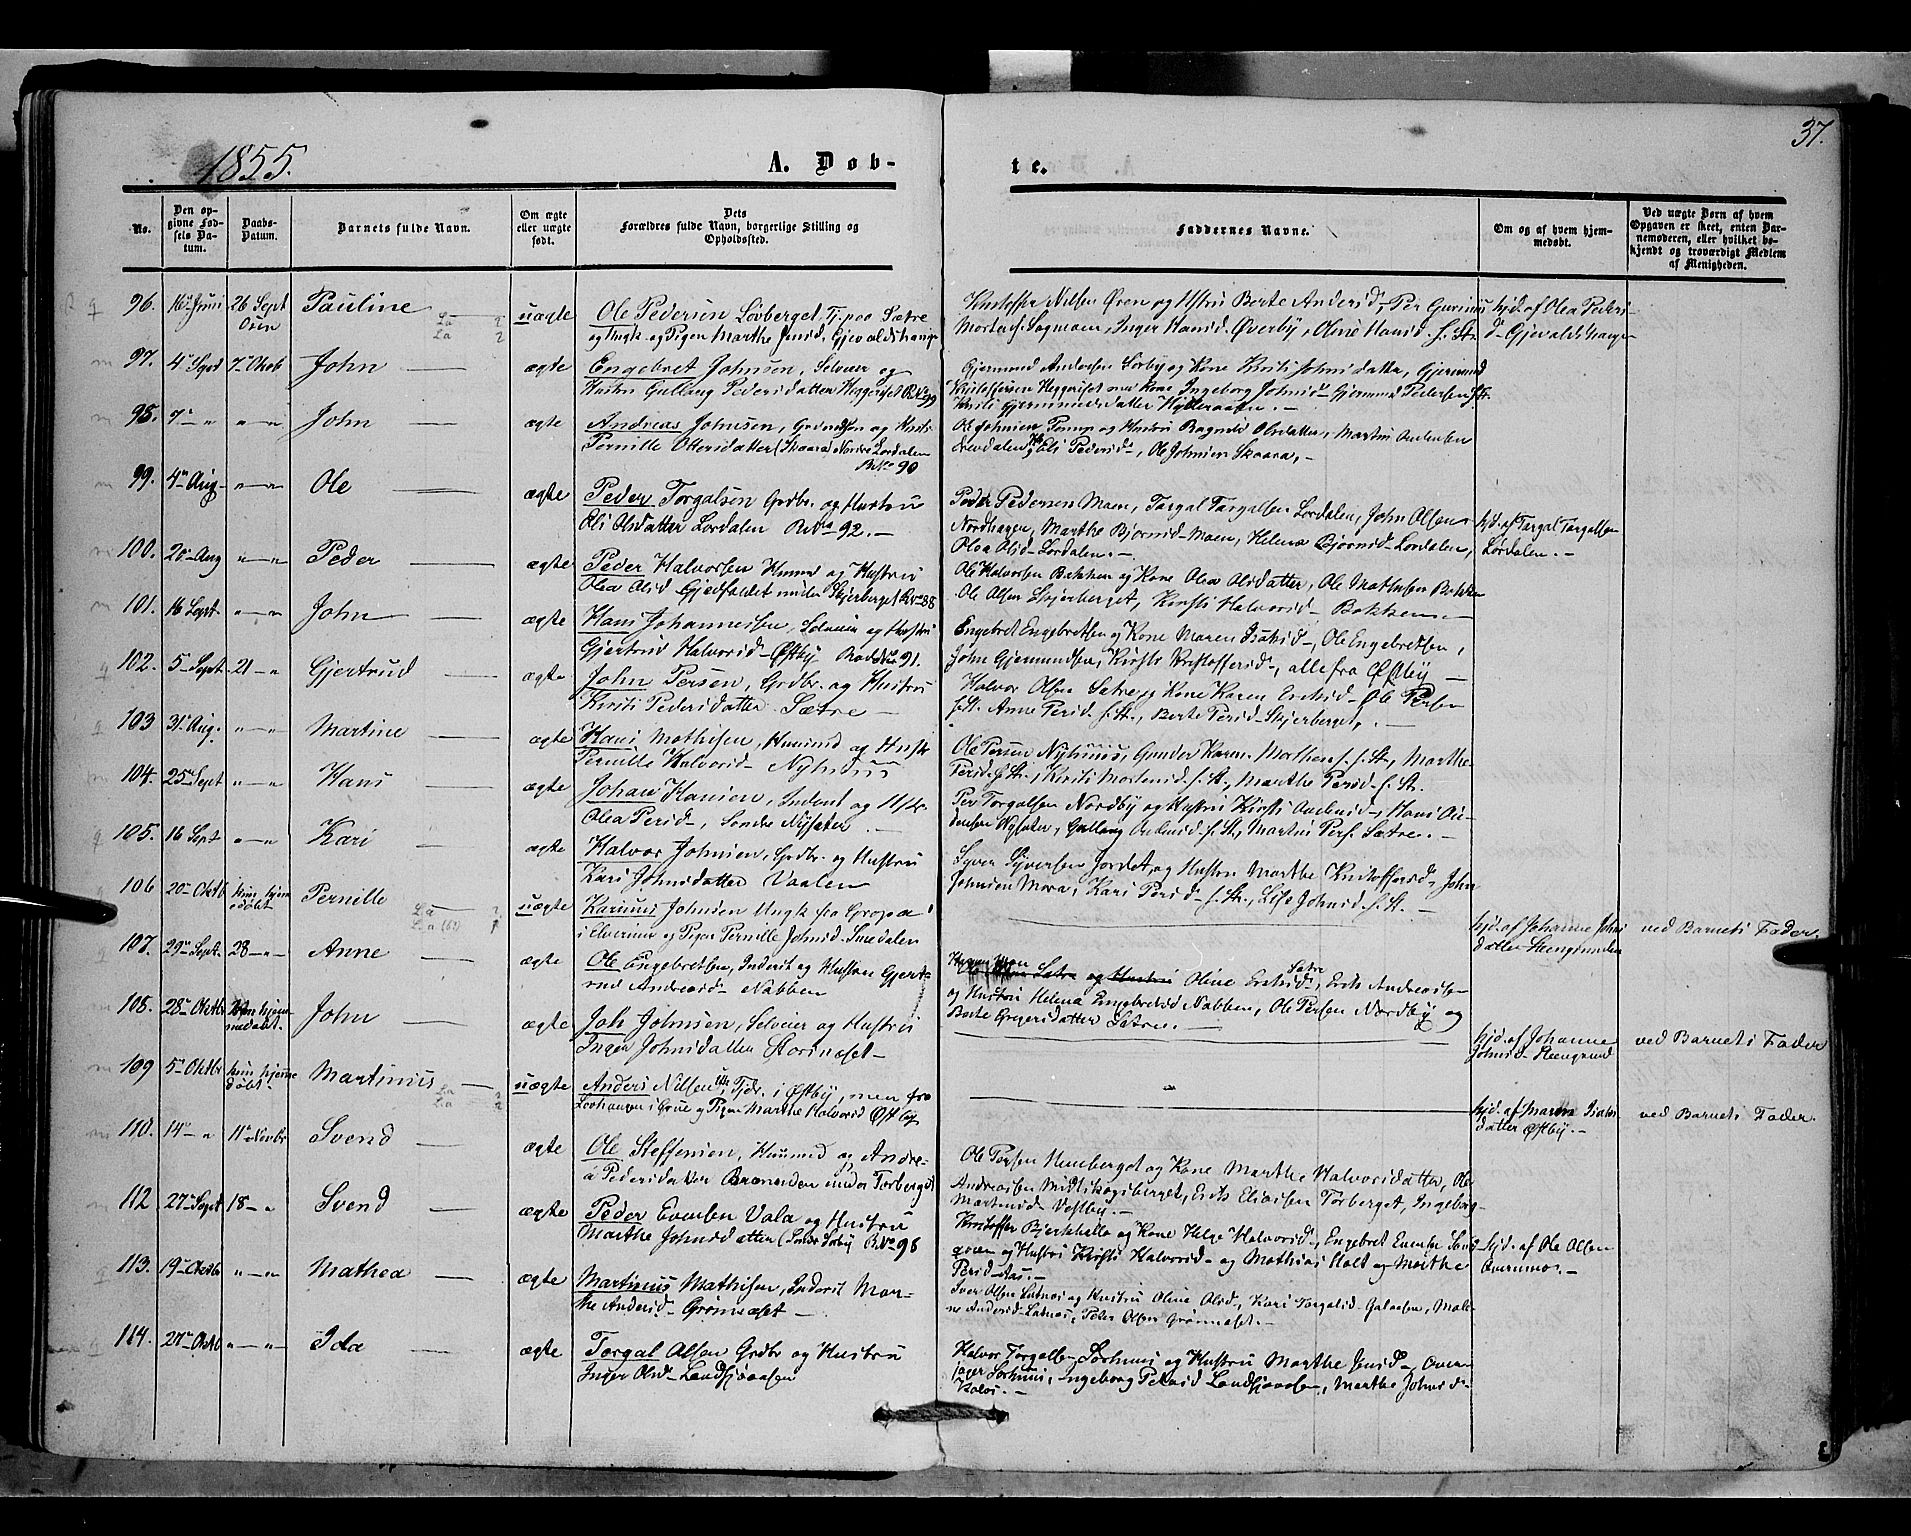 37.
1855.
A. Døb-
te.
No.
Den op-
givne Fød-
sels Da-
tum.
Daabs-
Datum.
Barnets fulde Navn.
Om ægte
eller uægte
født.
Dets
Forældres fulde Navn, borgerlige Stilling og
Opholdssted.
Faddernes Navne.
Om og af hvem hjem-
medøbt.
Ved uægte Børn af hvem
Opgaven er skeet, enten Bar-
nemoderen, eller hvilket be-
kjendt og troværdigt Medlem
af Menigheden.
96. 16 Juni 26 Sept Pauline uægte Ole Pedersen Løvberget Tj. paa Sætre
og Pigen Marthe Jensd. Gjevaldshaugen
Kristoffer Nilsen Øren og Hstru Berte Andersd.
Inger Hansd. Øverby, Oline Hansd. f. St.
hjd. af Olea Peders-
d. Gjevaldshaugen
97. 4 Sept 7 Oktob John ægte Engebret Johnsen, Selveier og
Hustru Gullaug Pedersdatter Heggeriset R.No 99
Gjermund Andersen Sørby og Kone Kirsti Johnsdatter, Gjermund
Kristoffersen Heggeriset og Kone Ingeborg Johnsd. Gjermund Pedersen f. St.
Kirsti Gjermundsdatter Hytteraaen.
98. 7 " " John ægte Andreas Johnsen, og Hust.
Pernille Olersdatter (Skaara) Nordre Lørdalen
R.No 90
Ole Johnsen og Hustru Ragnild Olsdatter, Martin
Lørdalen, Eli Pedersd., Ole Johnsen Skaara,
99. 4 Aug " " Ole ægte Peder Torgalsen Grdbr. og Hustru
Oli Olsdatter Lørdalen R.No 92.
Peder Pedersen Moen, Torgal Torgalsen Lørdalen, John Olsen
Nordhagen, Marthe Bjørnsd. Moen, Helene Bjørnsd. Lørdalen,
Olea Olsd. Lørdalen.
hjd. af Torgal Torgalsen
Lørdalen.
100. 20 Aug " " Peder ægte Peder Halvorsen Husmd og Hustru
Olea Olsd. Gjedfaldet under Skjerberget R.No 88
Ole Halvorsen Bakken og Kone Olea Olsdatter, Ole Mathisen Bakken
Ole Olsen Skjerberget, Kirsti Halvorsd. Bakken.
101. 16 Sept " " John ægte Hans Johannesen, Selveier og Hustru
Gjertrud Halvorsd. Østby No 91.
Engebret Engebretsen og Kone Maren Isaksd., Ole Engebretsen,
John Gjermundsen, Kirsti Kristoffersd., alle fra Østby
102. 5 Sept 21 " Gjertrud ægte John Persen, Grdbr. og Hustru
Kirsti Pedersdatter Sætre
Halvor Olsen Sætre og Kone Karen Eriksd. Ole Persen
f. St. Anne Persd. f. St., Berte Persd. Skjerberget,
103 31 Aug. " " Martine ægte Hans Mathisen, Husmd og Hustr.
Pernille Halvorsd. Nyhuus
Ole Persen Nyhuus, Gunder f. St., Marthe
Persd. f. St., Kirsti Mortensd. f. St., Marthe Persd. f. St.
104. 25 Sept " " Hans ægte Johan Hansen, Inderst og Hstr.
Olea Persd., Søndre Nysæter
Per Torgalsen Nordby og Hustru Kirsti Andersd., Hans An-
dersen Nysæter, Gullaug f. St., Martin Pers. Sætre.
105. 16 Sept " " Kari ægte Halvor Johnsen, Grdbr. og Hustru
Kari Johnsdatter Vaalen
Syver Syversen Jordet, og Hustru Marthe Kristoffersd., John
Johnsen Mora, Kari Persd. f. St., Lise Johnsd. f. St.
106 20 Oktb hjem-
døbt Pernille uægte Karinus Johnsen Ungk fra Gropa
i Elverum og Pigen Pernille Johnsd. Snedalen
hjd. af Johanne Johns-
datter Steengrunden
ved Barnets Fader.
107. 29 Sept. 28 " Anne ægte Ole Engebretsen, Inderst og Hustru Gjert-
rud Andreasd. Nabben
Sætre og Hustru Oline Eriksd. Sætre, Erik Andreassen
og Hustru Helena Engebretsd Nabben, Ole Persen Nordby og
Berte Gregersdatter Sætre.
108. 28 Oktbr hjem-
medøbt. John ægte Joh Johnsen, Selveier og Hustru
Inger Johnsdatter Storneset
hjd. af Johanne
Johnsd. Steengrund
ved Barnets Fader
109 5 Oktbr hjemme
døbt Martinius uægte Anders Nilsen Tjdr. i Østby, men fra
Løvhaugen i Grue og Pigen Marthe Halvorsd Østby
hjd. af Maren Isaks-
datter Østby.
ved Barnets Fader.
110. 14 " 11 Novbr Svend ægte Ole Steffensen, Husmd og Andre-
a Pedersdatter Brænnden under Torberget
Ole Persen Huneberget og Kone Marthe Halvorsdatter, Ole
Andreassen Midtskogsberget, Erik Eliassen Torberget, Ingeborg
Martinsd. Vestby.
112 27 Sept 18 " Svend ægte Peder Evensen Vala og Hustru
Marthe Johnsdatter (Søndre Sørby R.No 98
Kristoffer Bjerkhelle og Kone Helge Halvorsd., Engebret Evensen
og Hustru Kirsti Halvorsd. og Mathias Holt og Marthe
Persd. Aas.
hjd. af Ole Olsen
Overmoe.
113. 19 Oktbr " " Mathea ægte Martinus Mathisen, Inderst Mar-
the Andersd. Grønneset
Iver Olsen Lutnes og Hustru Oline Olsd., Kari Torgalsd. Galaasen, Male-
ne Andersd. Lutnes, Peder Olsen Grønneset.
114. 27 Oktb " " Ida ægte Torgal Olsen Grdbr og Hustru
Inger Olsd. Landsjøaasen
Halvor Torgalsen Sørhuus og Hustru Marthe Jensd.,
Sørhuus, Ingeborg Persd Landsjøaasen, Marthe Johnsd.